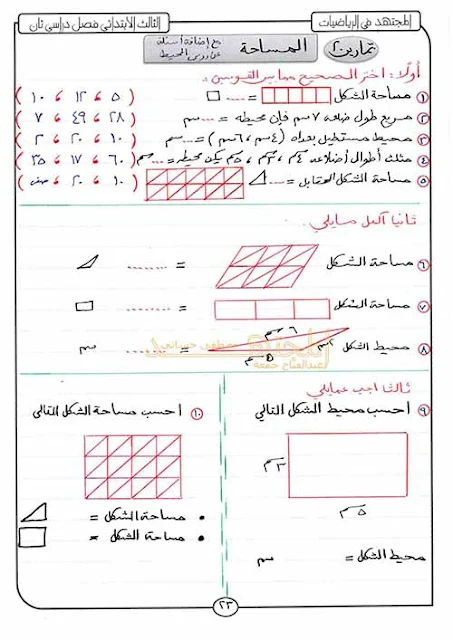 المجتهد فى الرياضيات
الثالث الابتدائي فصل دراسي ثان
تمارين ٢ المساحة مع إضافة أسئلة على درس المحيط
أولًا: اختر الصحيح مما بين القوسين
١ مساحة الشكل = ..... ( ٥ ، ١٢ ، ١٠ )
٢ مربع طول ضلعه ٧ سم فإن محيطه = ..... سم ( ٢٨ ، ٤٩ ، ٧ )
٣ محيط مستطيل بعداه ( ٤ سم ، ٦ سم ) = ..... سم ( ١٠ ، ٢٠ ، ٢ )
٤ مثلث أطوال أضلاعه ٤ سم ، ٦ سم ، ٧ سم يكون محيطه = ..... سم ( ٦٠ ، ١٧ ، ٢٥ )
٥ مساحة الشكل المقابل = ..... ( ١٠ ، ٢٠ ، صفر )
ثانيا أكمل مايلي
٦ مساحة الشكل = .......
٧ مساحة الشكل = .......
٨ محيط الشكل = ....... سم
٦ سم
٢ سم
٥ سم
المجتهد
عبدالفتاح جمعه
ثالثا أجب عمايلي
٩ أحسب محيط الشكل التالي
٣ سم
٥ سم
محيط الشكل = سم
١٠ أحسب مساحة الشكل التالى
مساحة الشكل =
مساحة الشكل =
٢٣